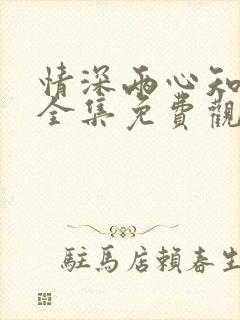 情深兩心知
全集免費觀
駐馬店賴春生